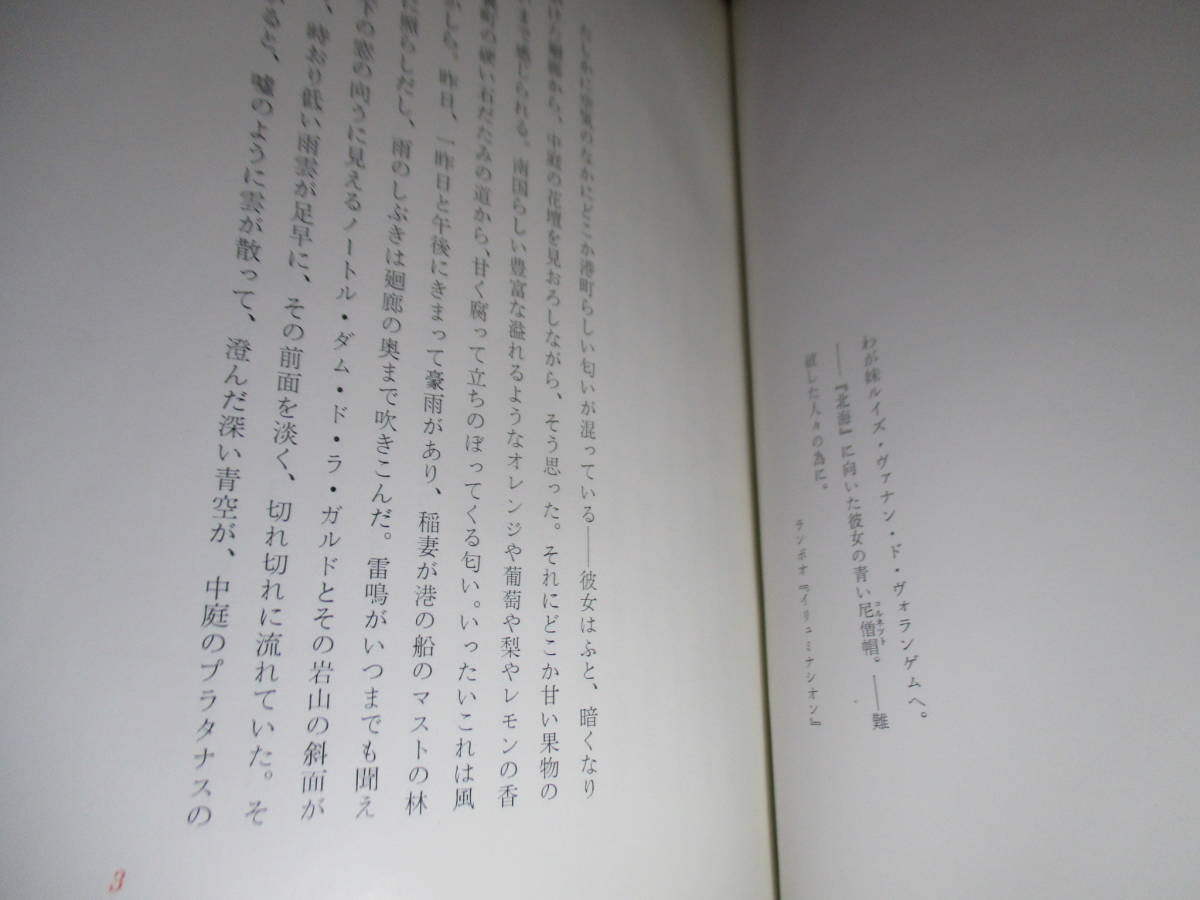 わが妹ルイズ・ヴァナン・ド・ヴォランゲムへ。
——『北海』に向いた彼女の青い尼僧帽。——難
コルネット
破した人々の為に。
ランボオ『イリュミナシオン』
たしかに空気のなかにどこか港町らしい匂いが混っている——彼女はふと、暗くなり
けた廻廊から、中庭の花壇を見おろしながら、そう思った。それにどこか甘い果物の
いまで感じられる。南国らしい豊富な溢れるようなオレンジや葡萄や梨やレモンの香
町の硬い石だたみの道から、甘く腐って立ちのぼってくる匂い。いったいこれは風
かしら。昨日、一昨日と午後にきまって豪雨があり、稲妻が港の船のマストの林
に照らしだし、雨のしぶきは廻廊の奥まで吹きこんだ。雷鳴がいつまでも聞え
下の窓の向うに見えるノートル・ダム・ド・ラ・ガルドとその岩山の斜面が
、時おり低い雨雲が足早に、その前面を淡く、切れ切れに流れていた。そ
ると、嘘のように雲が散って、澄んだ深い青空が、中庭のプラタナスの
3